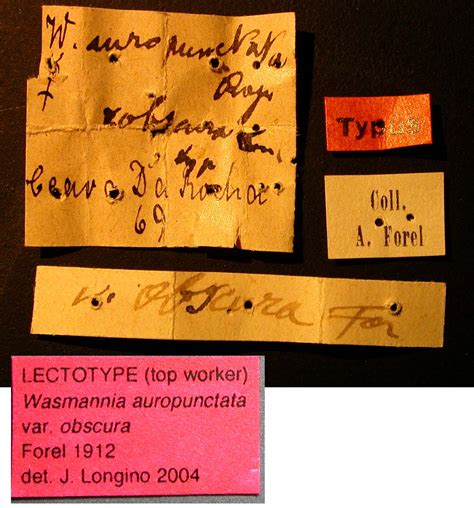 W. auropunctata
☿ Rog
v. obscura For.
typ
Ceara Da Rocha
69
Typus
Coll.
A. Forel
v. obscura For
LECTOTYPE (top worker)
Wasmannia auropunctata
var. obscura
Forel 1912
det. J. Longino 2004